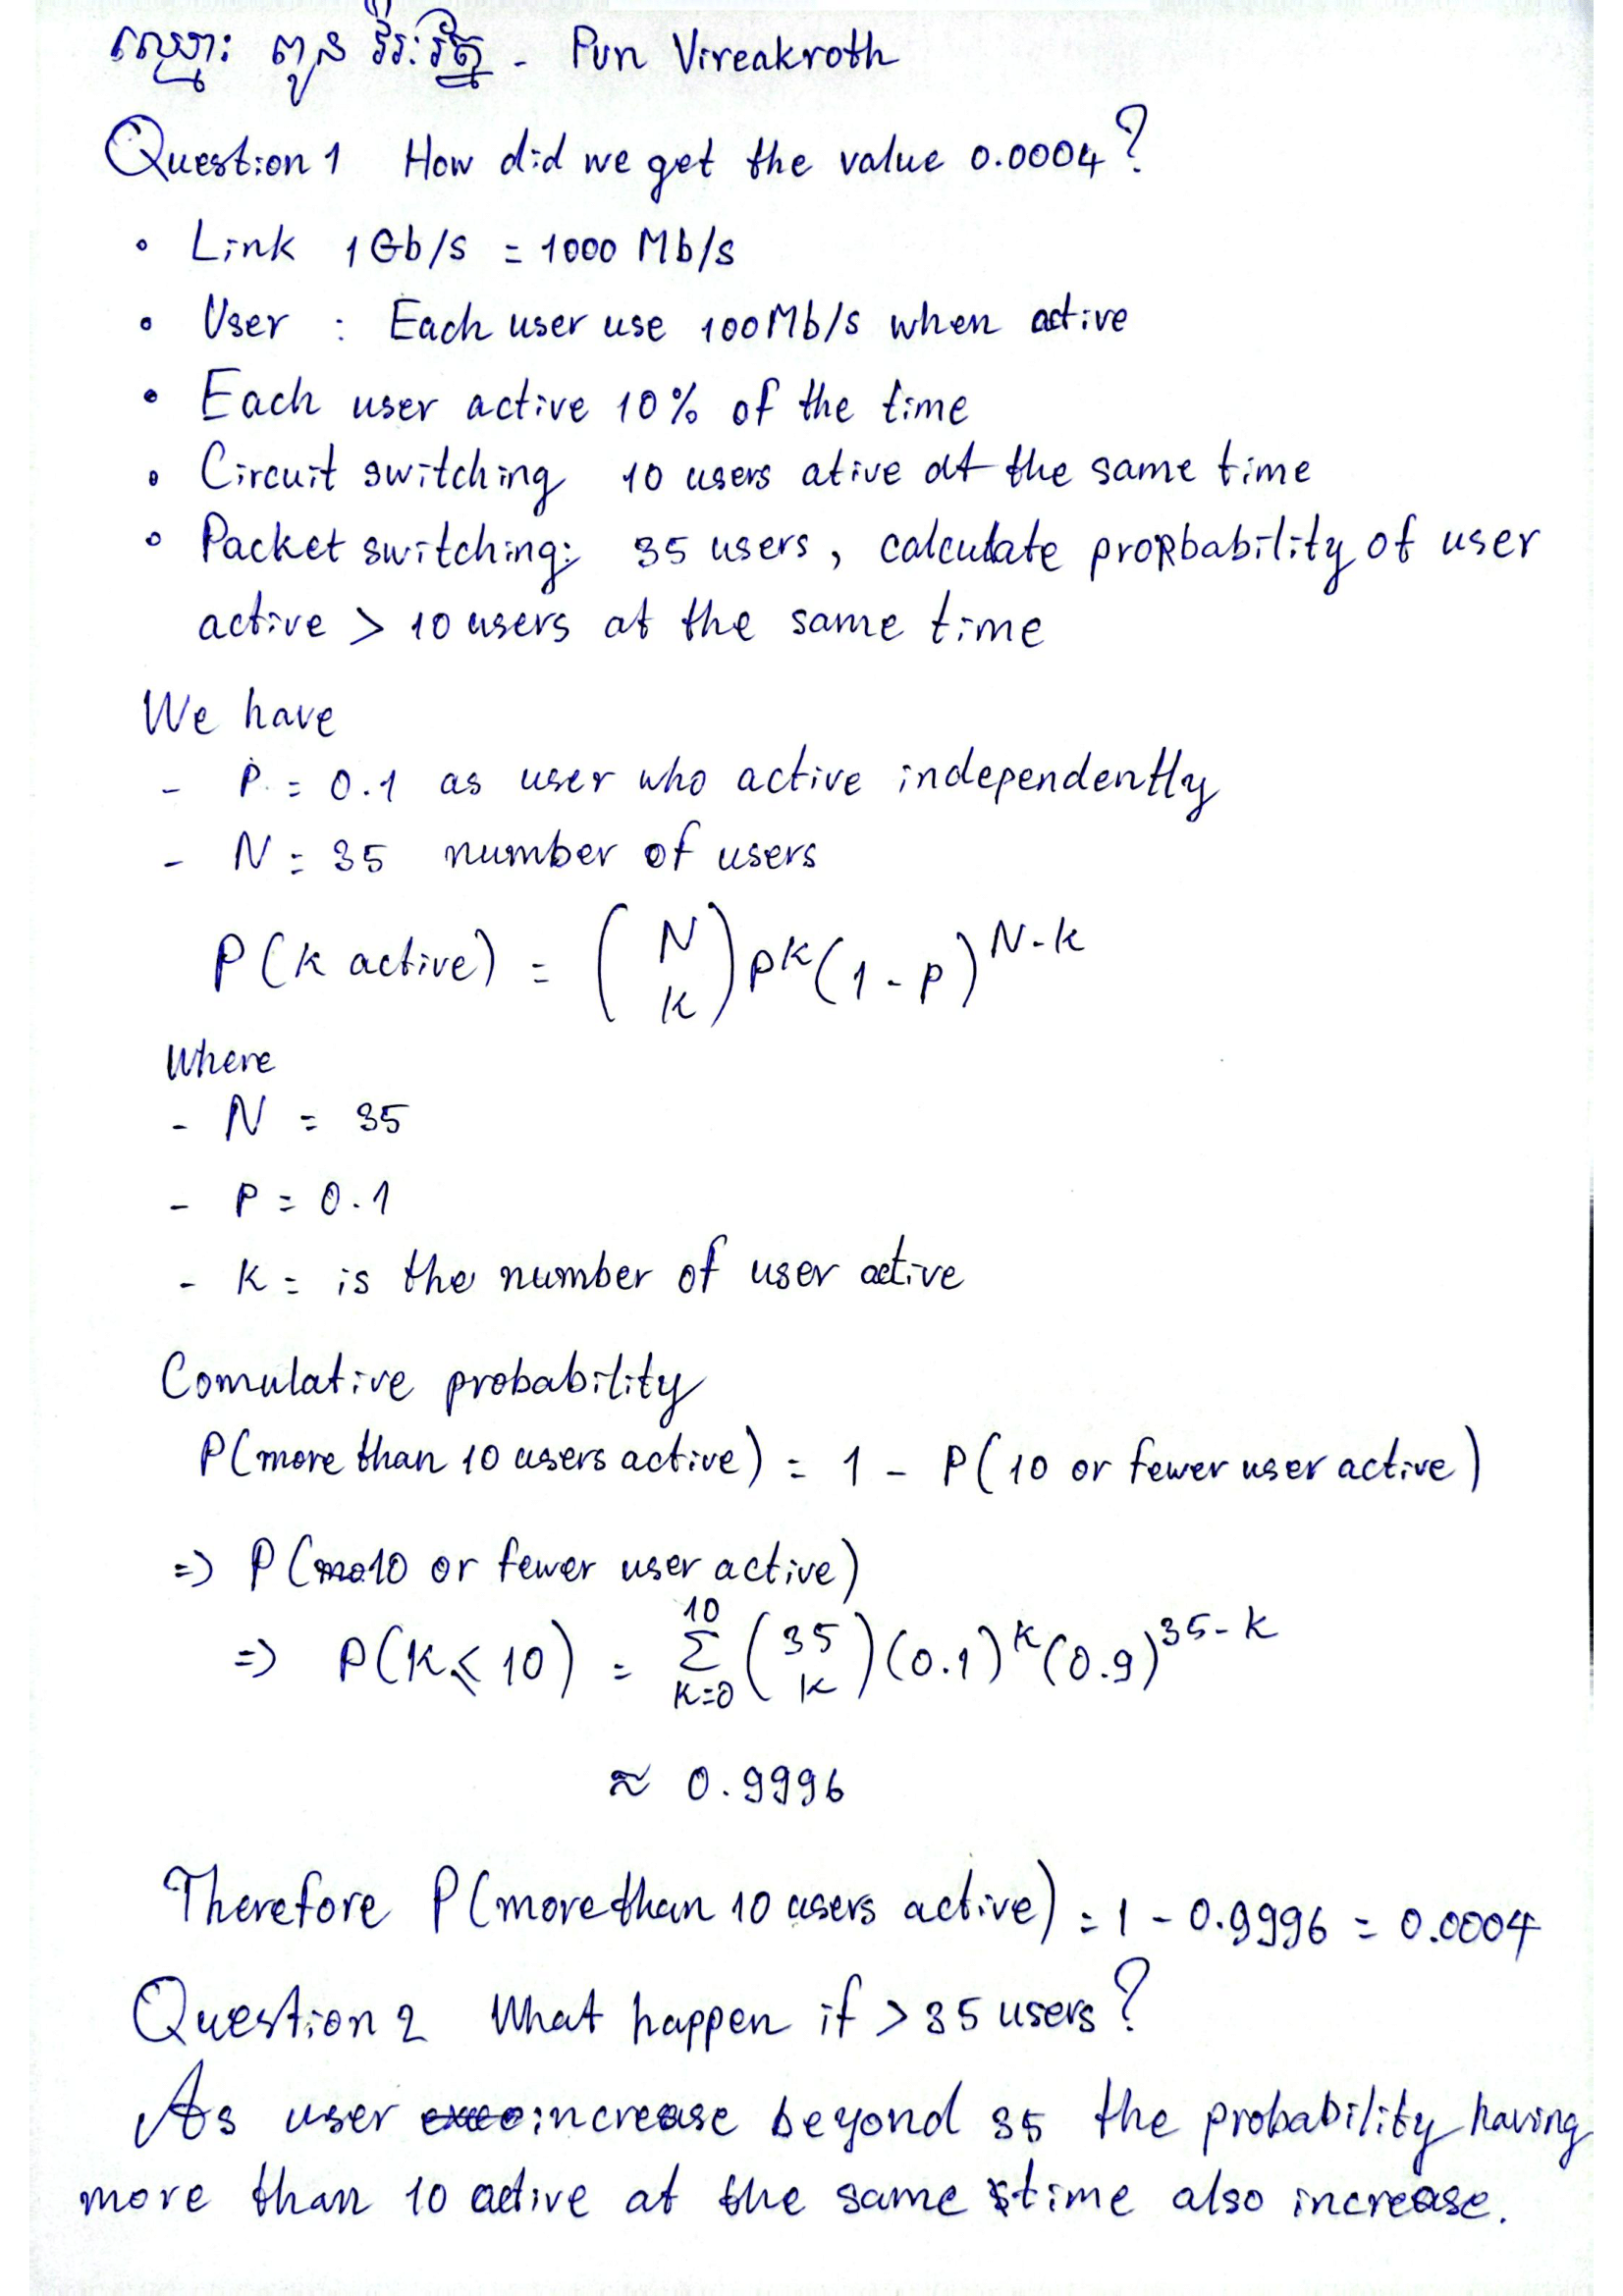 ឈ្មោះ ពូន វីរៈរ័ត្ន - Pun Vireakroth
Question 1 How did we get the value 0.0004?
• Link 1Gb/s = 1000 Mb/s
• User : Each user use 100Mb/s when active
• Each user active 10% of the time
• Circuit switching 10 users ative at the same time
• Packet switching: 35 users, calculate propbability of user
active > 10 users at the same time
We have
- P. = 0.1 as user who active independently
- N = 35 number of users
P(k active) = (N k) p^k (1-p)^N-k
Where
- N = 35
- P = 0.1
- K = is the number of user active
Comulative probability
P(more than 10 users active) = 1 - P(10 or fewer user active)
=> P(10 or fewer user active)
=> P(K ⩽ 10) = 10 Σ K=0 (35 k) (0.1)^k (0.9)^35-k
≈ 0.9996
Therefore P(more than 10 users active) = 1 - 0.9996 = 0.0004
Question 2 What happen if > 35 users?
As user increase beyond 35 the probability having
more than 10 active at the same time also increase.